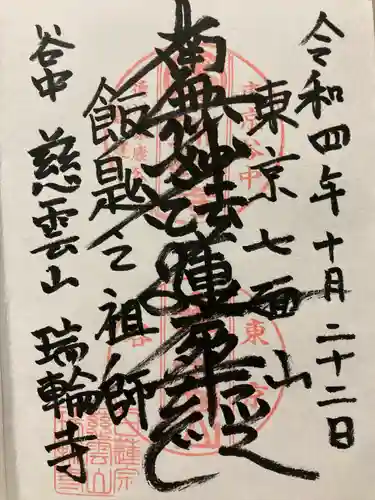 令和四年十月二十二日
東京七面山
南無妙法蓮華経
飯匙之祖師
谷中 慈雲山 瑞輪寺